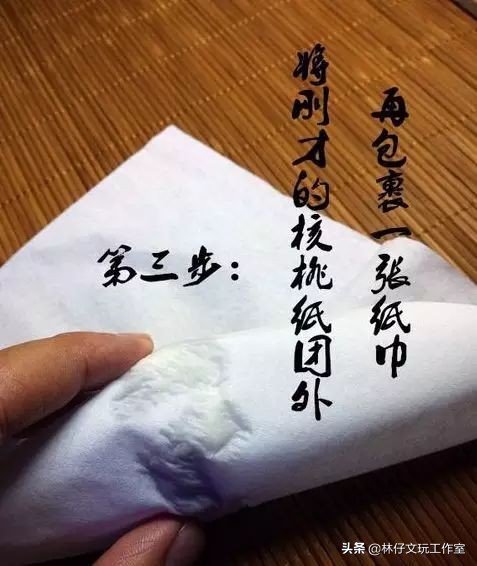 第三步：
将刚才的核桃纸团外
再包裹一张纸巾
头条@林仔文玩工作室